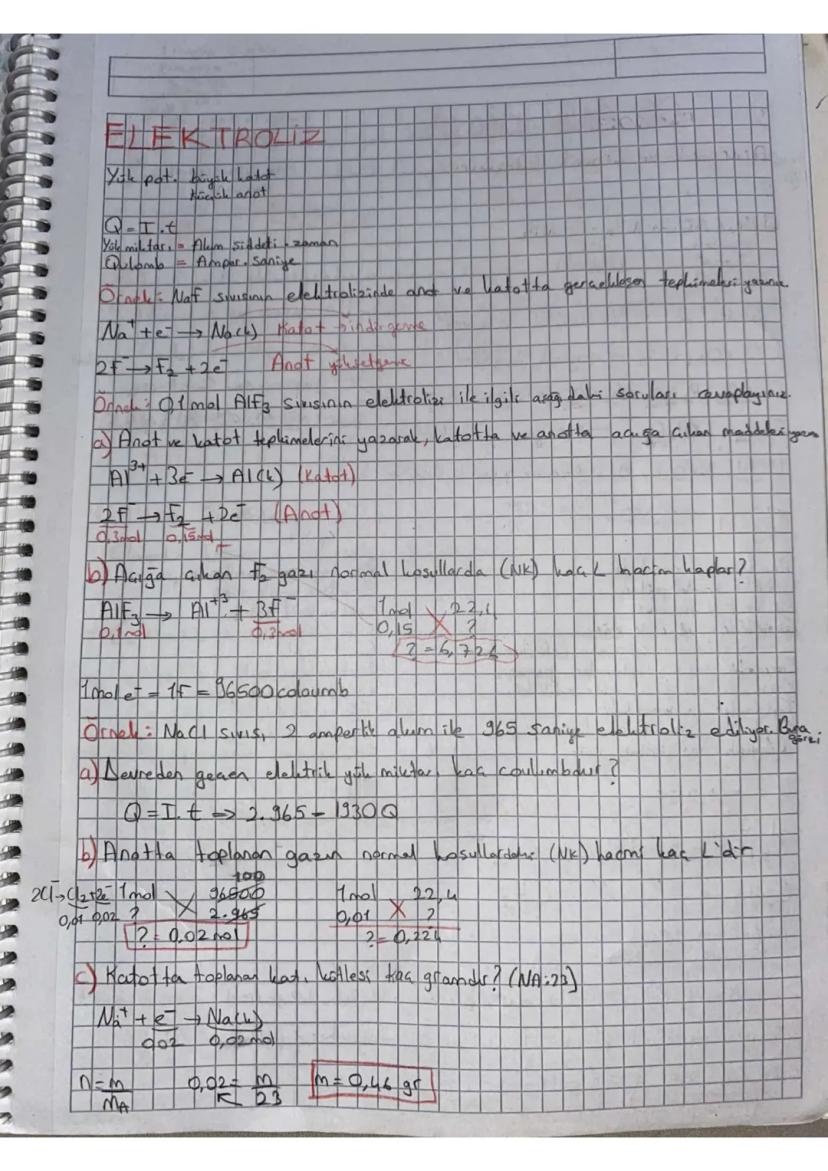 ELEKTROLİZ
Yük pot. büyük katot
küçük anot
Q=I.t
Yük miktarı = Akım şiddeti . zaman
Qulomb = Amper . saniye
Örnek: NaF sıvısının elektrolizinde anot ve katotta gerçekleşen tepkimeleri yazınız
Na⁺ + e⁻ → Na(k) Katot indirgenme
2F⁻ → F₂ + 2e⁻ Anot yükseltgenme
Örnek: 0,1 mol AlF₃ sıvısının elektrolizi ile ilgili aşağıdaki soruları cevaplayınız.
a) Anot ve katot tepkimelerini yazarak, katotta ve anotta açığa çıkan maddeleri yazın
Al³⁺ + 3e⁻ → Al(k) (Katot)
2F⁻ → F₂ + 2e⁻ (Anot)
0,3mol 0,15mol
b) Açığa çıkan F₂ gazı normal koşullarda (NK) kaç L hacim kaplar?
AlF₃ → Al⁺³ + 3F⁻ 1mol 22,4
0,1mol 0,3mol 0,15 ?
? = 6,72L
1mol e⁻ = 1F = 96500 coloumb
Örnek: NaCl sıvısı, 2 amperlik akım ile 965 saniye elektroliz ediliyor. Buna göre;
a) Devreden geçen elektrik yük miktarı kaç coulumbdur?
Q=I.t ⇒ 2.965 = 1930Q
b) Anotta toplanan gazın normal koşullardaki (NK) hacmi kaç L'dir
100
2Cl⁻→Cl₂+2e⁻ 1mol 96500 1mol 22,4
0,01 0,02 ? 2.965 0,01 ?
? = 0,02mol ? = 0,224
c) Katotta toplanan katı kütlesi kaç gramdır? (NA:23)
Na⁺ + e⁻ → Na(k)
0,02 0,02mol
n = m/MA 0,02 = m/23 m = 0,46 gr